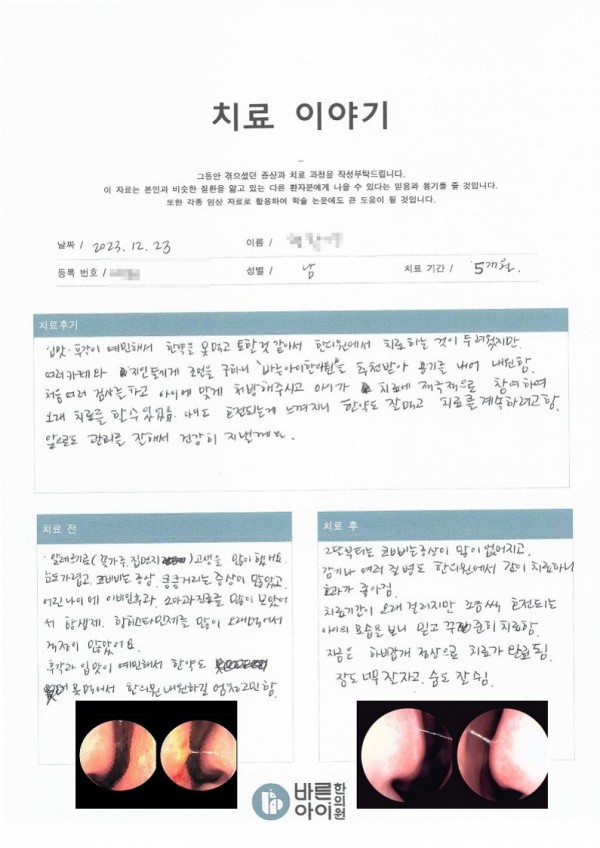 치료 이야기
그동안 겪으셨던 증상과 치료 과정을 작성부탁드립니다.
이 자료는 본인과 비슷한 질환을 앓고 있는 다른 환자분에게 나을 수 있다는 믿음과 용기를 줄 것입니다.
또한 각종 임상 자료로 활용하여 학술 논문에도 큰 도움이 될 것입니다.
날짜 / 2023. 12. 23 이름 /
등록 번호 / 성별 / 남 치료 기간 / 5개월.
치료후기
입맛·후각이 예민해서 한약을 못먹고 토할것 같아서 한의원에서 치료하는 것이 두려웠지만,
여러카페와 지인들에게 조언을 구하니 "바른아이한의원"을 추천받아 용기를 내어 내원함.
처음 여러 검사를 하고 아이에 맞게 처방해주시고 아이가 치료에 적극적으로 참여하여
오래 치료를 할 수 있었음. 호전되는게 느껴지니 한약도 잘먹고 치료를 계속하려고함.
앞으로도 관리를 잘해서 건강히 지낼게요.
치료 전
알레르기로 (꽃가루, 집먼지) 고생을 많이 했어요.
눈도 가렵고, 코비비는 증상, 킁킁거리는 증상이 많았고,
어린나이에 이비인후과, 소아과진료를 많이 보았어
서 항생제, 항히스타민제를 많이 오래먹어서
걱정이 많았어요.
후각과 입맛이 예민해서 한약도
못먹어서 한의원 내원하길 엄청고민함.
치료 후
2달부터는 코비비는증상이 많이 없어지고,
감기나 여러 질병도 한의원에서 같이 치료하니
효과가 좋아짐.
치료기간이 오래 걸리지만 조금씩 호전되는
아이의 모습을 보니 믿고 꾸준히 치료함.
지금은 정상으로 치료가 완료됨.
잠도 너무 잘자고, 숨도 잘쉼.
바른아이한의원